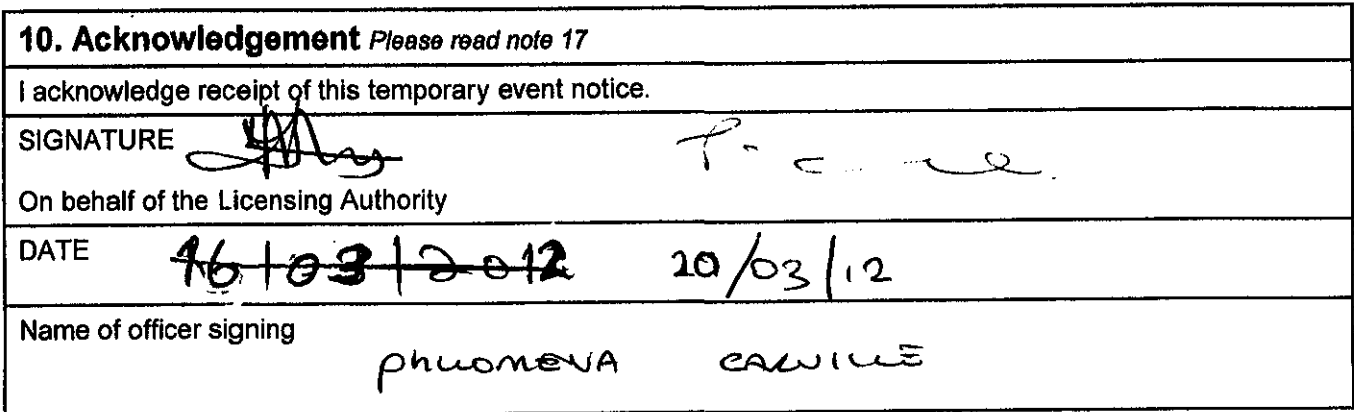 10. Acknowledgement Please read note 17
I acknowledge receipt of this temporary event notice.
SIGNATURE
On behalf of the Licensing Authority
DATE 16/03/2012 20/03/12
Name of officer signing
PHILOMENA